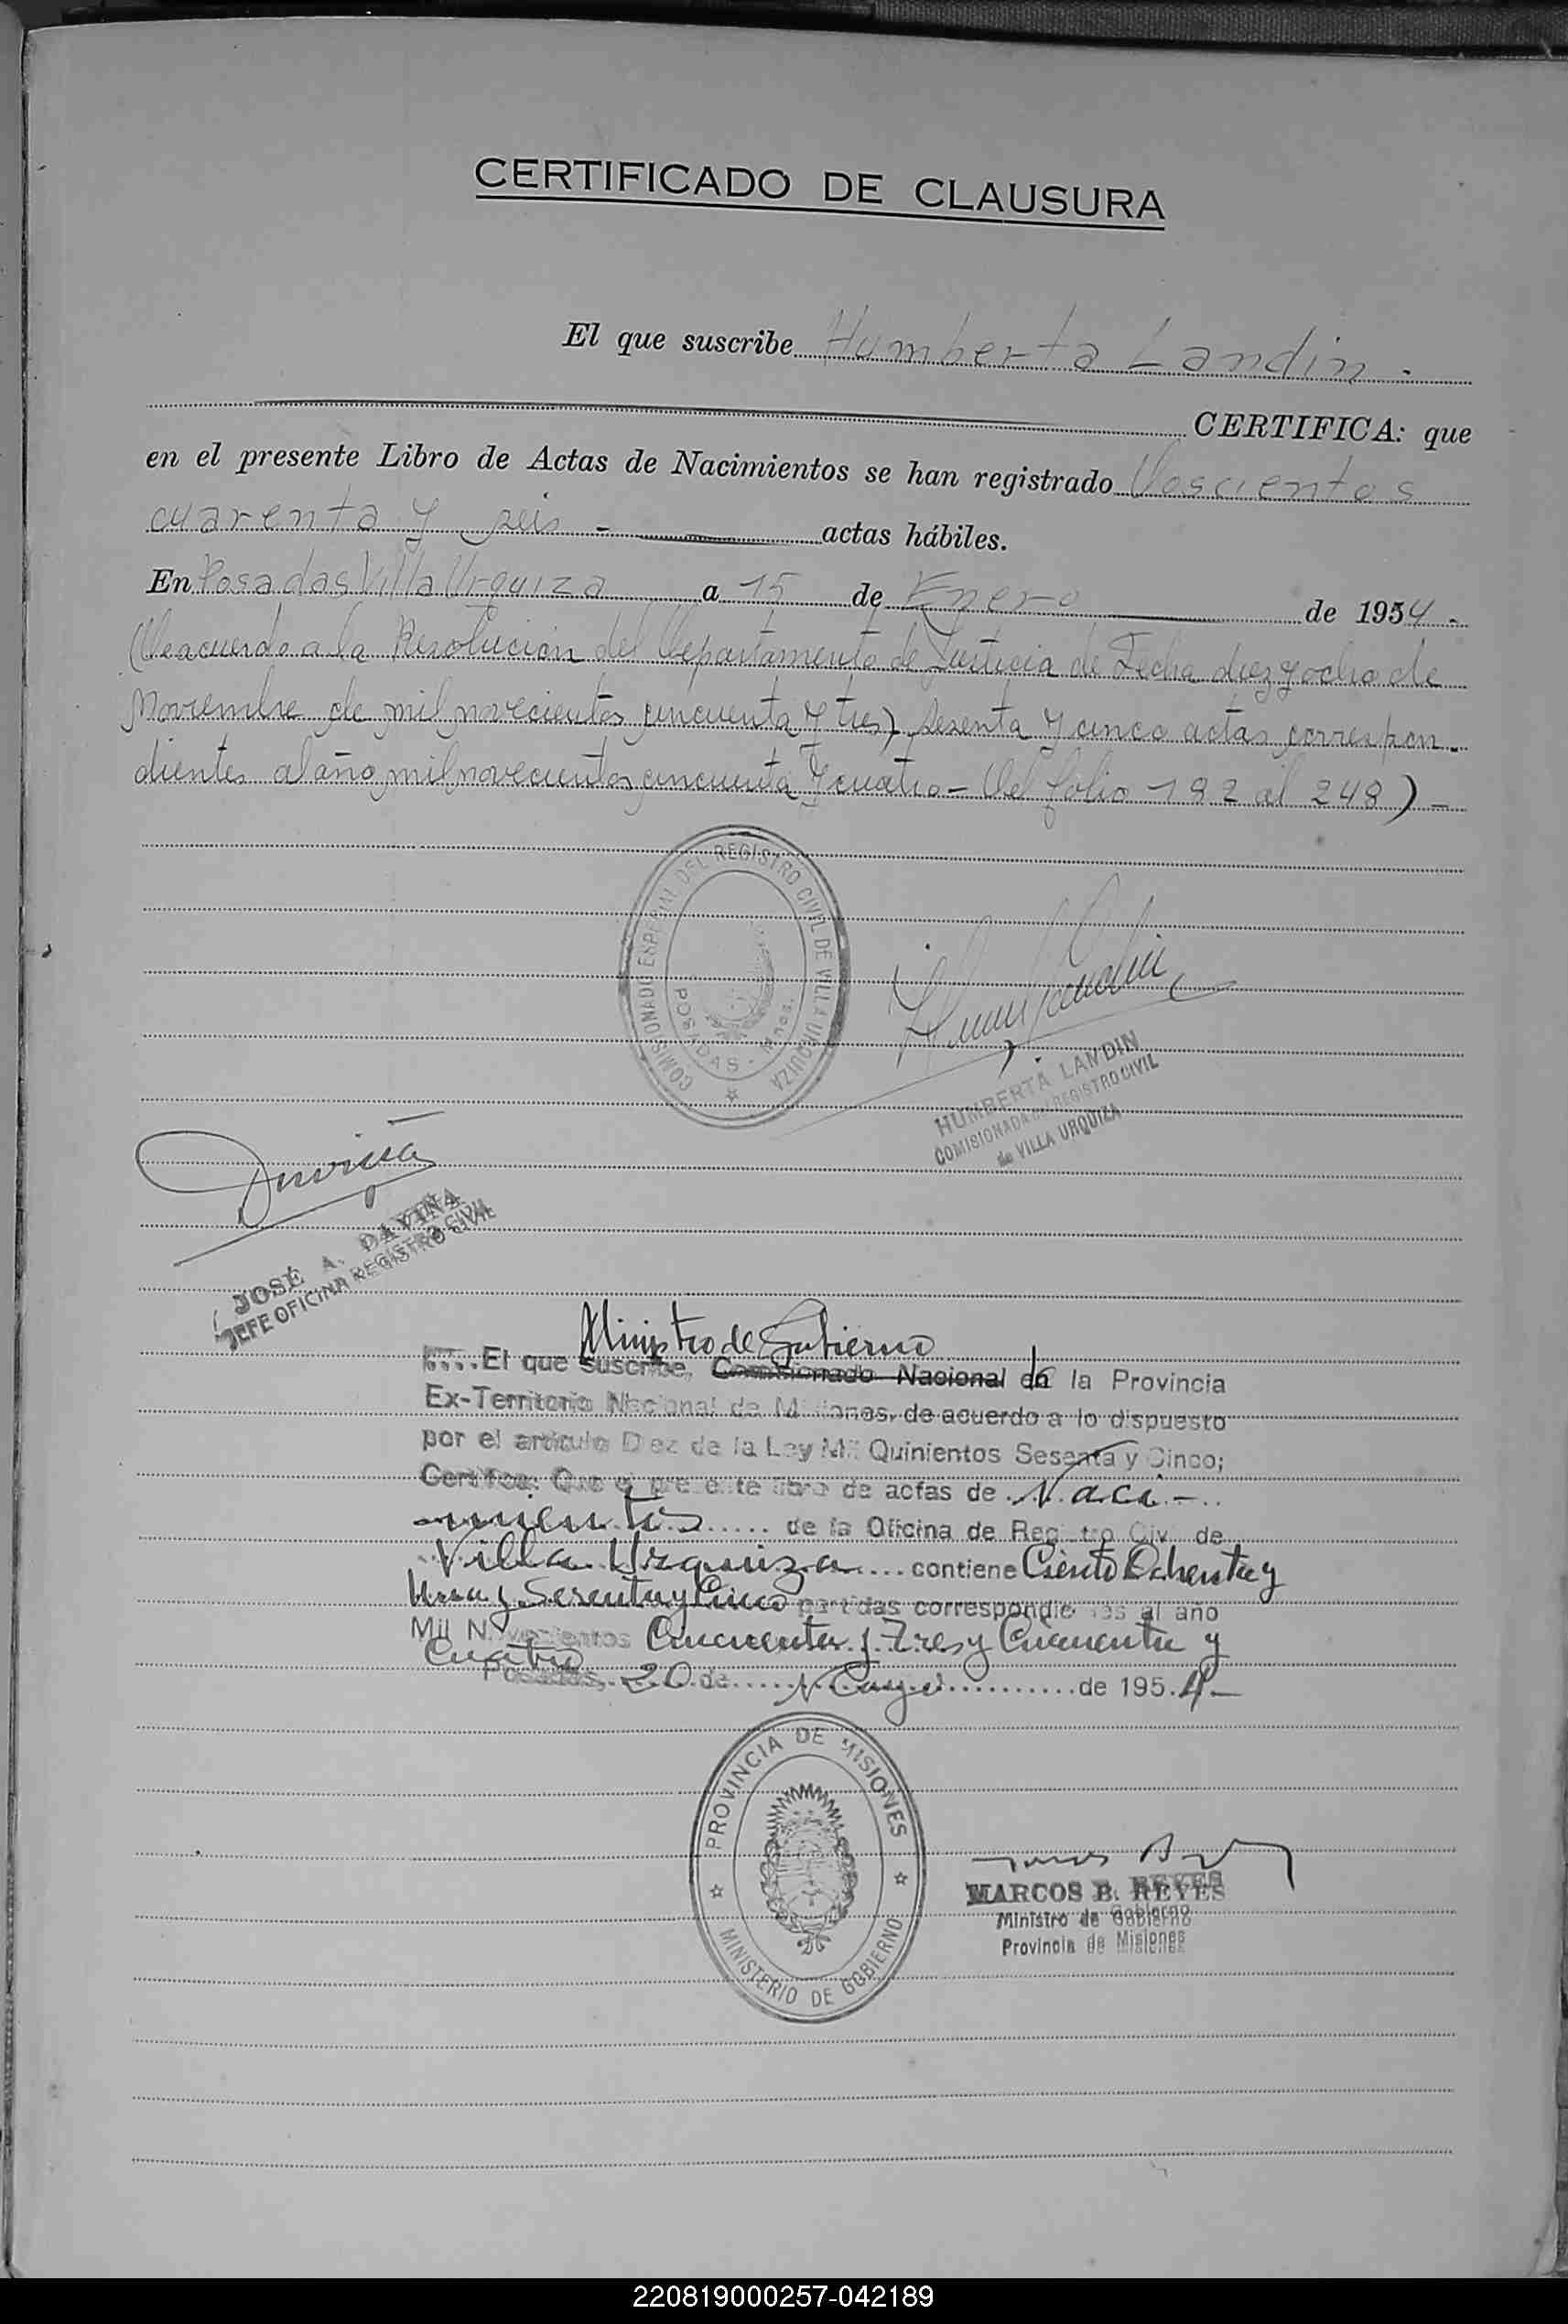 CERTIFICADO DE CLAUSURA
El que suscribe Humberta Landin.
CERTIFICA: que
en el presente Libro de Actas de Nacimientos se han registrado Doscientos
cuarenta y seis - actas hábiles.
En Posadas Villa Urquiza a 15 de Enero de 1954.-
(Deacuerdo a la Resolución del Departamento de Justicia de Fecha diez y ocho de
Noviembre de mil novecientos cincuenta y tres) Sesenta y cinco actas correspon-
dientes al año mil novecientos cincuenta y cuatro - (Del folio 182 al 248) -
COMISIONADO ESPECIAL DEL REGISTRO CIVIL DE VILLA URQUIZA
POSADAS - Mnes.
HUMBERTA LANDIN
COMISIONADA del REGISTRO CIVIL
de VILLA URQUIZA
JOSÉ A. DAVIÑA
JEFE OFICINA REGISTRO CIVIL
Ministro de Gobierno
El que suscribe, Comisionado Nacional de la Provincia
Ex-Territorio Nacional de Misiones, de acuerdo a lo dispuesto
por el artículo Diez de la Ley Mil Quinientos Sesenta y Cinco;
Certifica: Que el presente libro de actas de Naci-
mientos de la Oficina de Registro Civ. de
Villa Urquiza contiene Ciento Ochenta y
Una y Sesenta y Cinco partidas correspondientes al año
Mil Novecientos Cincuenta y Tres y Cincuenta y
Cuatro
Posadas, 20 de Mayo de 1954-
PROVINCIA DE MISIONES
MINISTERIO DE GOBIERNO
MARCOS B. REYES
Ministro de Gobierno
Provincia de Misiones
220819000257-042189